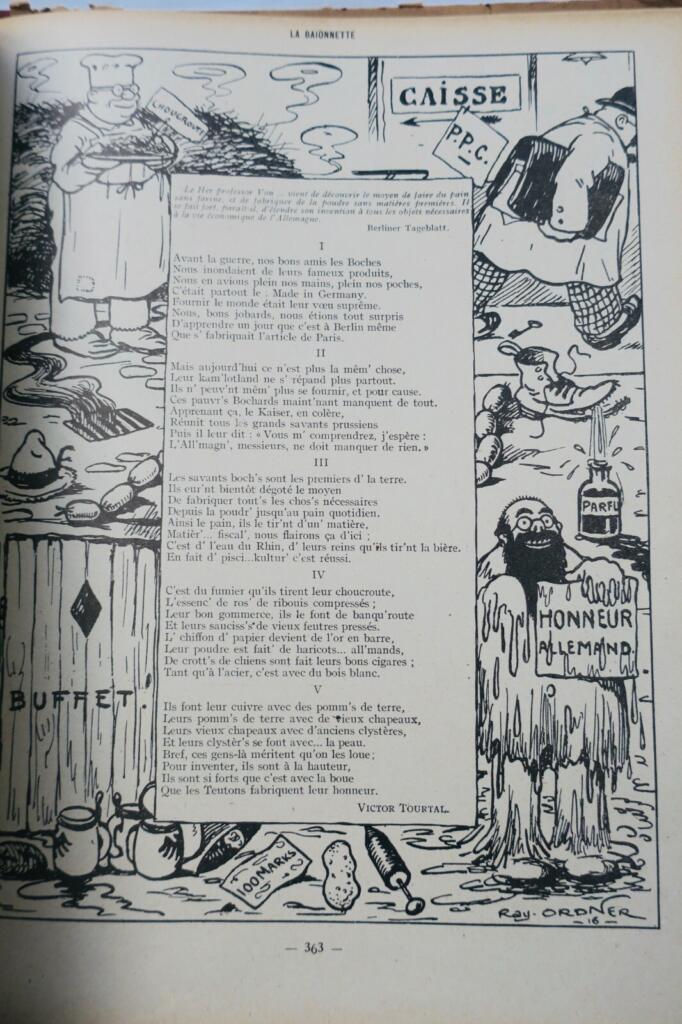 LA BAÏONNETTE
CHOUCROUTE
CAISSE
P.P.C.
Le Her professor Von ... vient de découvrir le moyen de faire du pain
sans farine, et de fabriquer de la poudre sans matières premières. Il
se fait fort, paraît-il, d'étendre son invention à tous les objets nécessaires
à la vie économique de l'Allemagne.
Berliner Tageblatt.
I
Avant la guerre, nos bons amis les Boches
Nous inondaient de leurs fameux produits,
Nous en avions plein nos mains, plein nos poches,
C'était partout le : Made in Germany.
Fournir le monde était leur vœu suprême.
Nous, bons jobards, nous étions tout surpris
D'apprendre un jour que c'est à Berlin même
Que s' fabriquait l'article de Paris.
II
Mais aujourd'hui ce n'est plus la mêm' chose,
Leur kam'lotland ne s' répand plus partout.
Ils n' peuv'nt mêm' plus se fournir, et pour cause.
Ces pauvr's Bochards maint'nant manquent de tout.
Apprenant ça, le Kaiser, en colère,
Réunit tous les grands savants prussiens
Puis il leur dit : « Vous m' comprendrez, j'espère :
L'All'magn', messieurs, ne doit manquer de rien. »
III
Les savants boch's sont les premiers d' la terre.
Ils eur'nt bientôt dégoté le moyen
De fabriquer tout's les chos's nécessaires
Depuis la poudr' jusqu'au pain quotidien.
Ainsi le pain, ils le tir'nt d'un' matière,
Matièr'... fiscal', nous flairons ça d'ici ;
C'est d' l'eau du Rhin, d' leurs reins qu'ils tir'nt la bière.
En fait d' pisci...kultur' c'est réussi.
IV
C'est du fumier qu'ils tirent leur choucroute,
L'essenc' de ros' de ribouis compressés ;
Leur bon gommerce, ils le font de banqu'route
Et leurs sauciss's de vieux feutres pressés.
L' chiffon d' papier devient de l'or en barre,
Leur poudre est fait' de haricots... all'mands,
De crott's de chiens sont fait leurs bons cigares ;
Tant qu'à l'acier, c'est avec du bois blanc.
V
Ils font leur cuivre avec des pomm's de terre,
Leurs pomm's de terre avec de vieux chapeaux,
Leurs vieux chapeaux avec d'anciens clystères,
Et leurs clystèr's se font avec... la peau.
Bref, ces gens-là méritent qu'on les loue ;
Pour inventer, ils sont à la hauteur,
Ils sont si forts que c'est avec la boue
Que les Teutons fabriquent leur honneur.
VICTOR TOURTAL.
PARFU
HONNEUR
ALLEMAND.
BUFFET.
100 MARKS
RAY-ORDNER
-16-
— 363 —